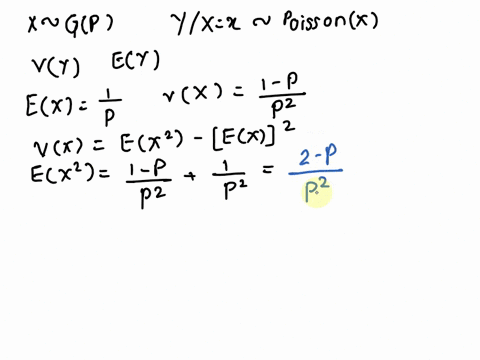 X ~ G(P) Y/X=x ~ Poisson(x)
V(Y) E(Y)
E(X) = 1/P V(X) = 1-P/P²
V(X) = E(X²) - [E(X)]²
E(X²) = 1-P/P² + 1/P² = 2-P/P²